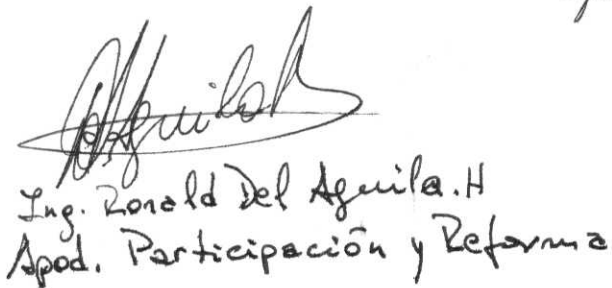 Ing. Ronald Del Aguila.H
Apod. Participación y Reforma